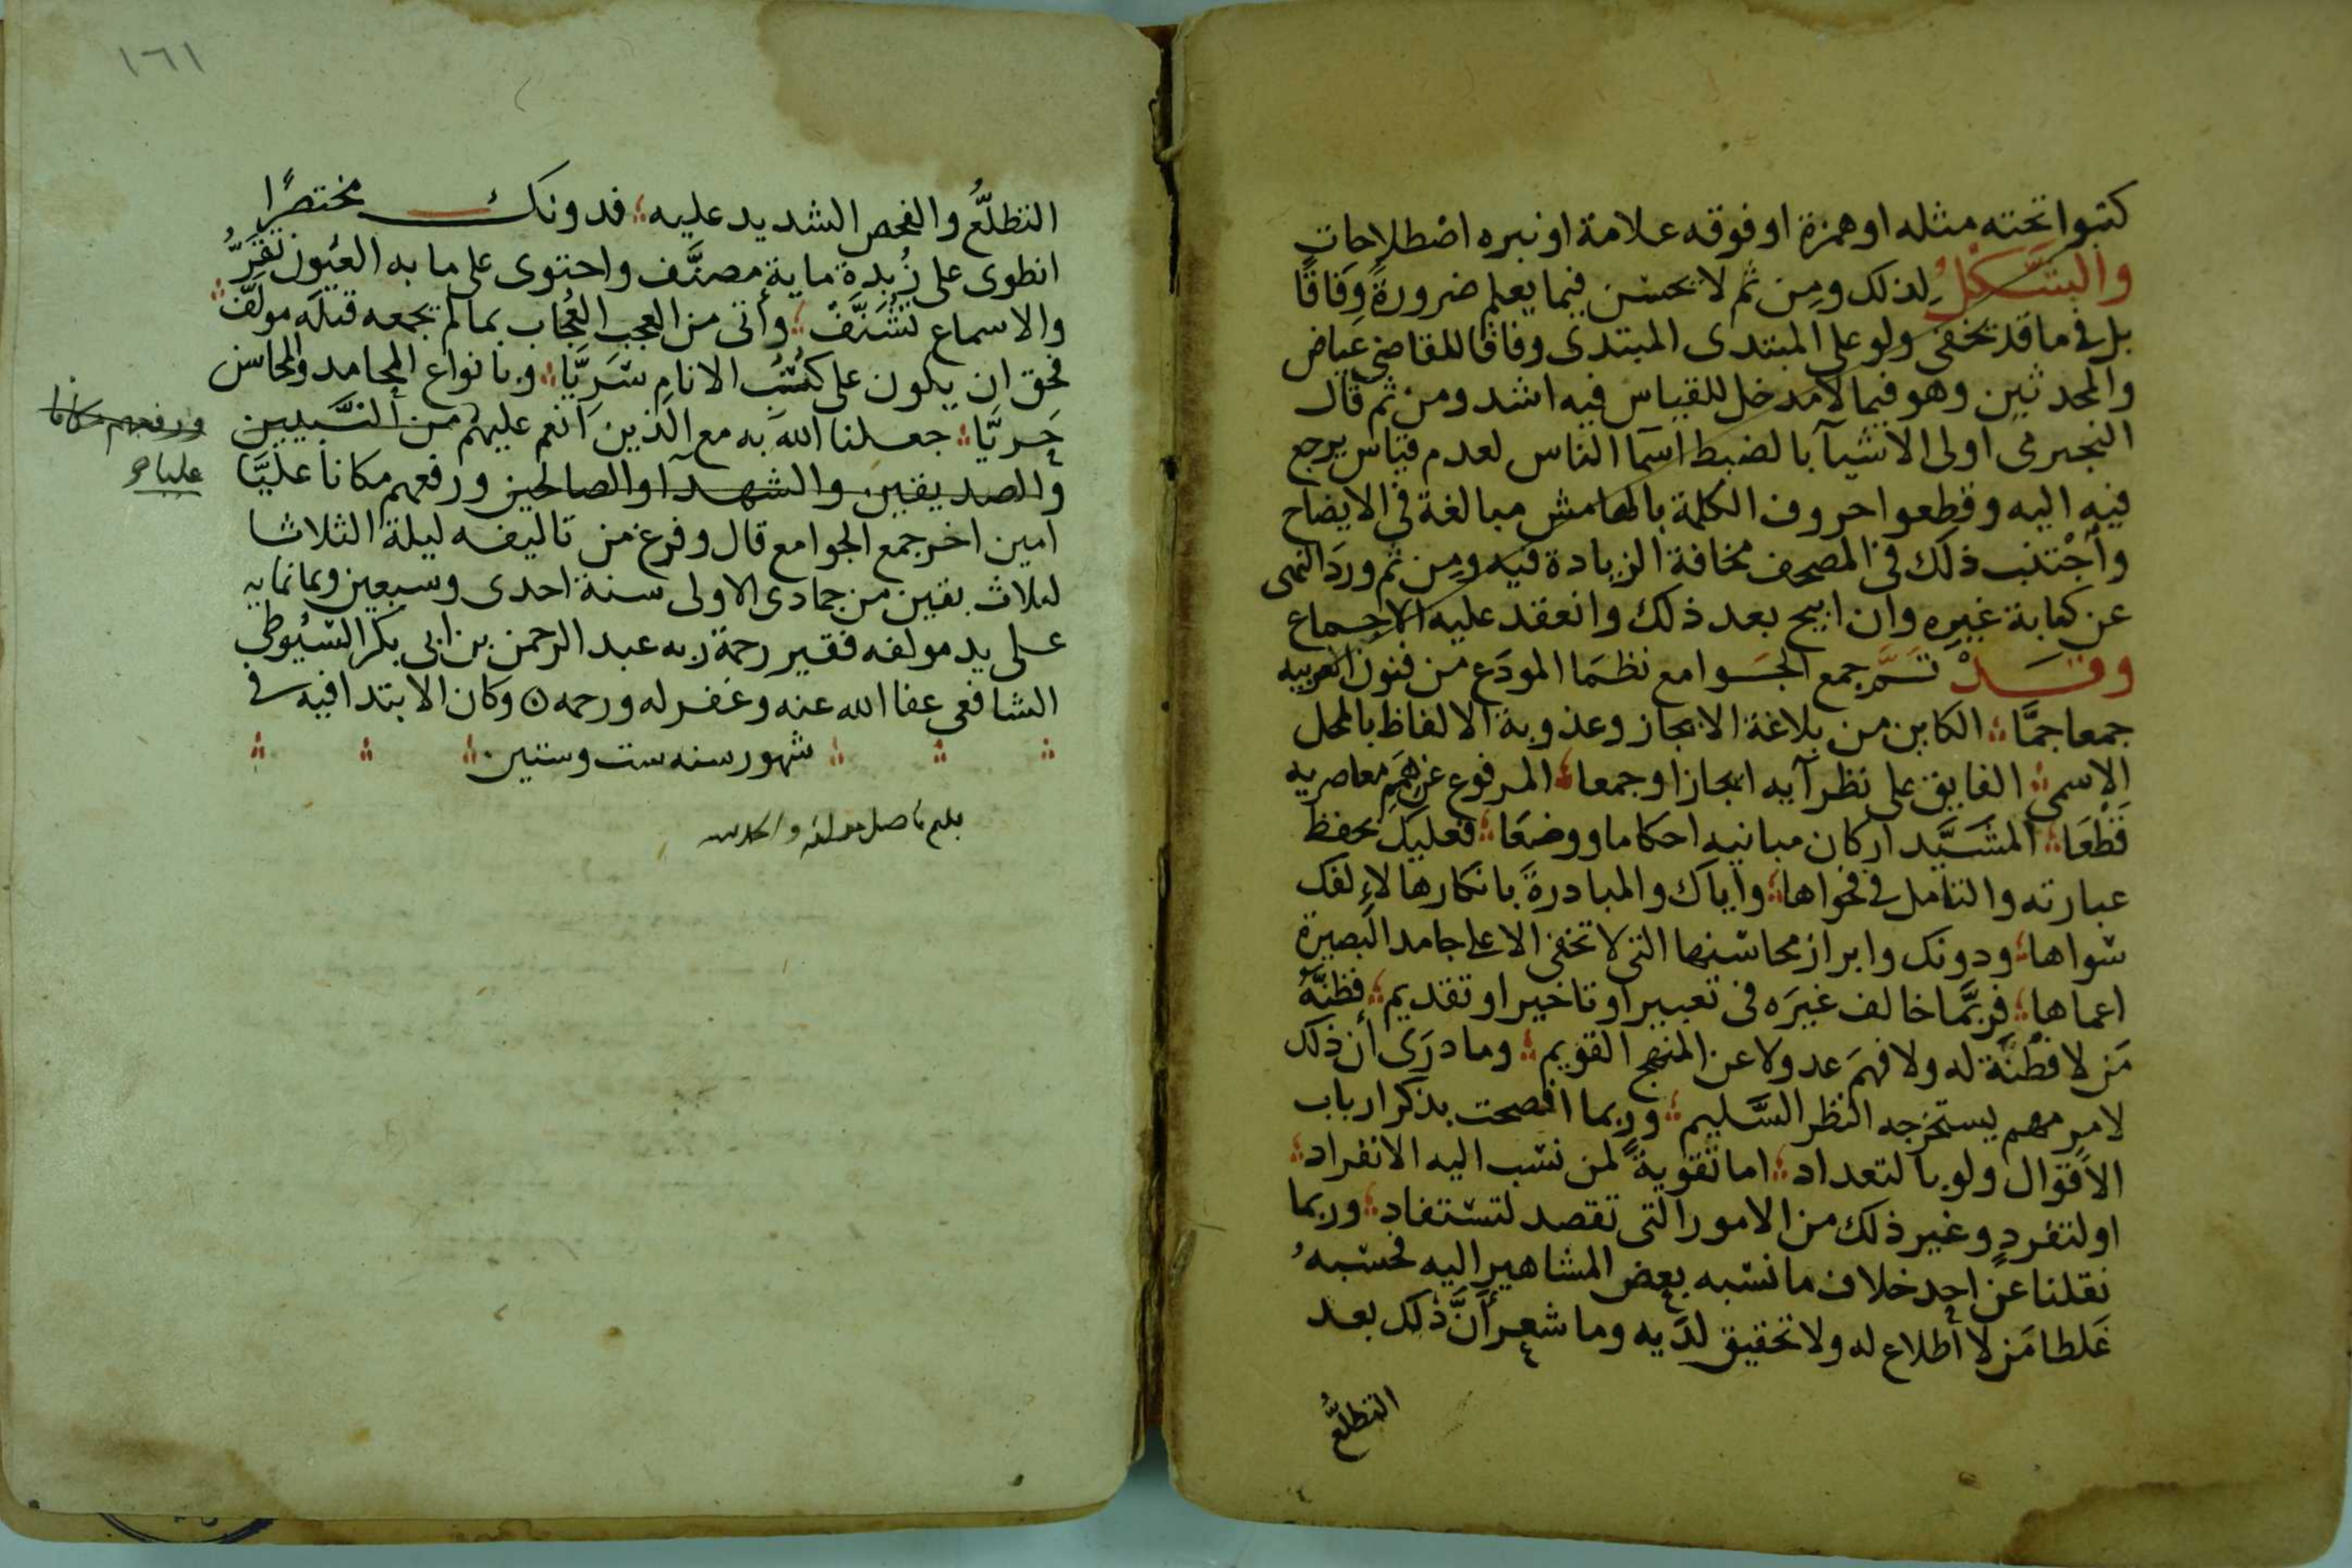 كتبوا تحته مثله او همزة او فوقه علامة او نبره اصْطلاحات
والشَّكْلُ لذلك ومِن ثم لا يحسن فيما يعلم ضرورةً وِفَاقًا
بل في ما قد يخفى ولو على المبتدى المبتدى وفاقا للقاضى عياض
والمحدثين وهو فيما لا مدخل للقياس فيه اشد ومن ثم قال
النجيرمى اولى الاشيآ بالضبط اسمآ الناس لعدم قياس يرجع
فيه اليه وقطعوا حروف الكلمة بالهامش مبالغة في الايضاح
وأجْتنب ذلك في المصحف مخافة الزيادة فيه ومِن ثم وردَ النهى
عن كتابة غيره وان ابيح بعد ذلك وانعقد عليه الاجماع
وقَدْ تَمَّ جمع الجَوامع نظمَا المودَع من فنون العربيه
جمعا جمَّا الكاين من بلاغة الايجاز وعذوبة الالفاظ بالمحل
الاسمى الفايق على نظرآيه ايجازا وجمعا المرفوع عن همَمِ معاصريه
قَطْعَا المشَيَّد اركان مبانيه احكاما ووضعَا فعليك بحفظ
عبارته والتامل في فحواها واياك والمبادرةَ بانكارها لاءِلفك
سواها ودونك وابراز محاسنها التى لا تخفى الا على جامد البصيرة
اعماها فربَّما خالف غيرَه فى تعبير او تاخير او تقديم فظنَّهُ
مَن لا فطْنَة له ولا فهمَ عدولا عن المنهج القويم وما درَى أن ذلك
لامرٍ مهم يستخرجه النظر السَّليم وربما افصحت بذكر ارباب
الاقوال ولو بالتعداد اما تقويةً لمن نسب اليه الانفراد
او لتفردٍ وغير ذلك من الامور التى تقصد لتستفاد وربما
نقلنا عن احد خلاف ما نسبه بعض المشاهير اليه فحسبهُ
غَلطا مَن لا أطلاع له ولا تحقيق لدَيه وما شعر أنَّ ذلك بعد
التطلُّع
١٦١
التطلُّع والفحص الشديد عليه فدونك مختصرًا
انطوى على زُبدة ماية مصنَّف واحتوى على ما به العيُون تقرُّ
والاسماع تشَنَّفْ وأتى من العجب العُجاب بما لم يجمعه قبلَه مولَّف
فحق ان يكون على كتُبُ الانام سَريَّا وبانواع المحامد والمحاسن
حَريَّا جعلنا الله به مع الذين أنعم عليهم من النَّبيين
والصديقين والشهدآ والصالحين ورفعهم مكانا عليَّا
ورفعهم مكانا
عليا
امين اخر جمع الجوامع قال وفرغ من تاليفه ليلة الثلاثا
لثلاث بقين من جمادى الاولى سنة احدى وسبعين وثمانمايه
على يد مولفه فقير رحمة ربه عبد الرحمن بن ابى بكر السُّيُوطى
الشافعى عفا الله عنه وغفر له ورحمه وكان الابتدا فيه في
شهور سنه ست وستين